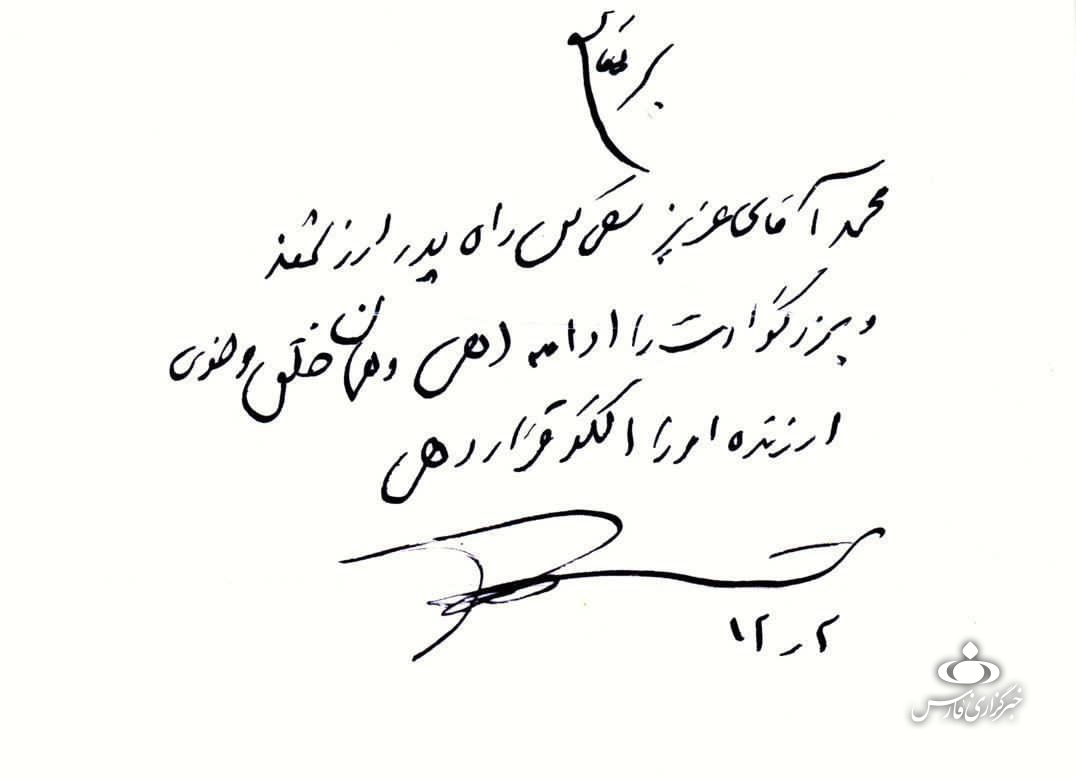 بسمه تعالی
محمد آقای عزیز سعی کن راه پدر ارزشمند
و بزرگوارت را ادامه دهی و همان خلق و خوی
ارزنده او را الگو قرار دهی
۲ ر ۱۲
خبرگزاری فارس